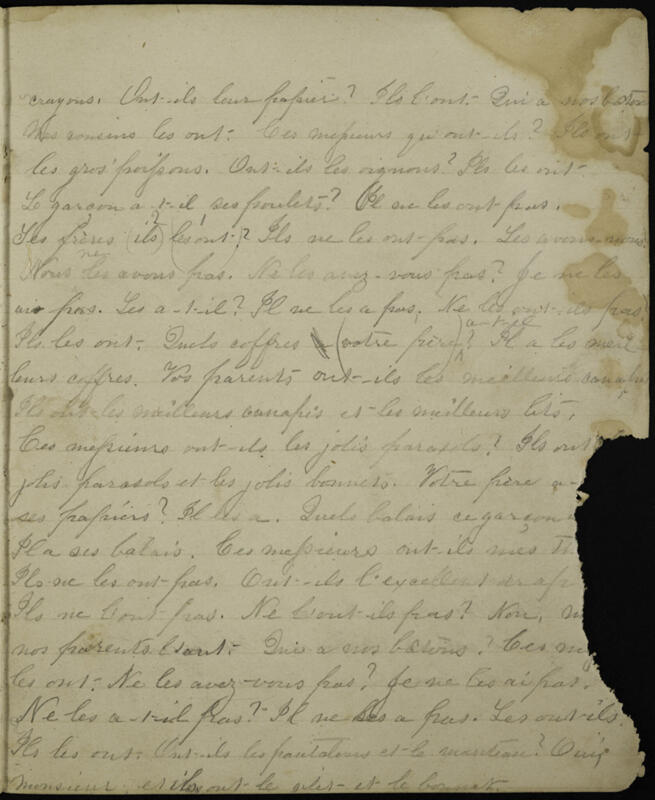 crayons. Ont-ils leur papier? Ils l'ont. Qui a nos bâton
Mes cousins les ont. Ces messieurs qu'ont-ils? Ils ont
les gros poissons. Ont-ils les oignons? Ils les ont.
Le garçon a-t-il ses poulets? Il ne les ont pas.
Ses frères (ils) (les ont)? Ils ne les ont pas. Les avons-nous
Nous ne les avons pas. Ne les avez-vous pas? Je ne les
ai pas. Les a-t-il? Il ne les a pas. Ne les ont-ils pas
Ils les ont. Quels coffres (votre frère) a-t-il? Il a les meil
leurs coffres. Vos parents ont-ils les meilleurs canapés
Ils ont les meilleurs canapés et les meilleurs lits.
Ces messieurs ont-ils les jolis parasols? Ils ont
jolis parasols et les jolis bonnets. Votre père a-
ses papiers? Il les a. Quels balais ce garçon
Il a ses balais. Ces messieurs ont-ils mes
Ils ne les ont pas. Ont-ils l'excellent drap
Ils ne l'ont pas. Ne l'ont-ils pas? Non,
nos parents l'ont. Qui a nos bâtons? Ces
les ont. Ne les avez-vous pas? Je ne les ai pas.
Ne les a-t-il pas? Il ne les a pas. Les ont-ils
Ils les ont. Ont-ils les pantalons et le manteau? Oui,
monsieur, et ils ont le gilet et le bonnet.